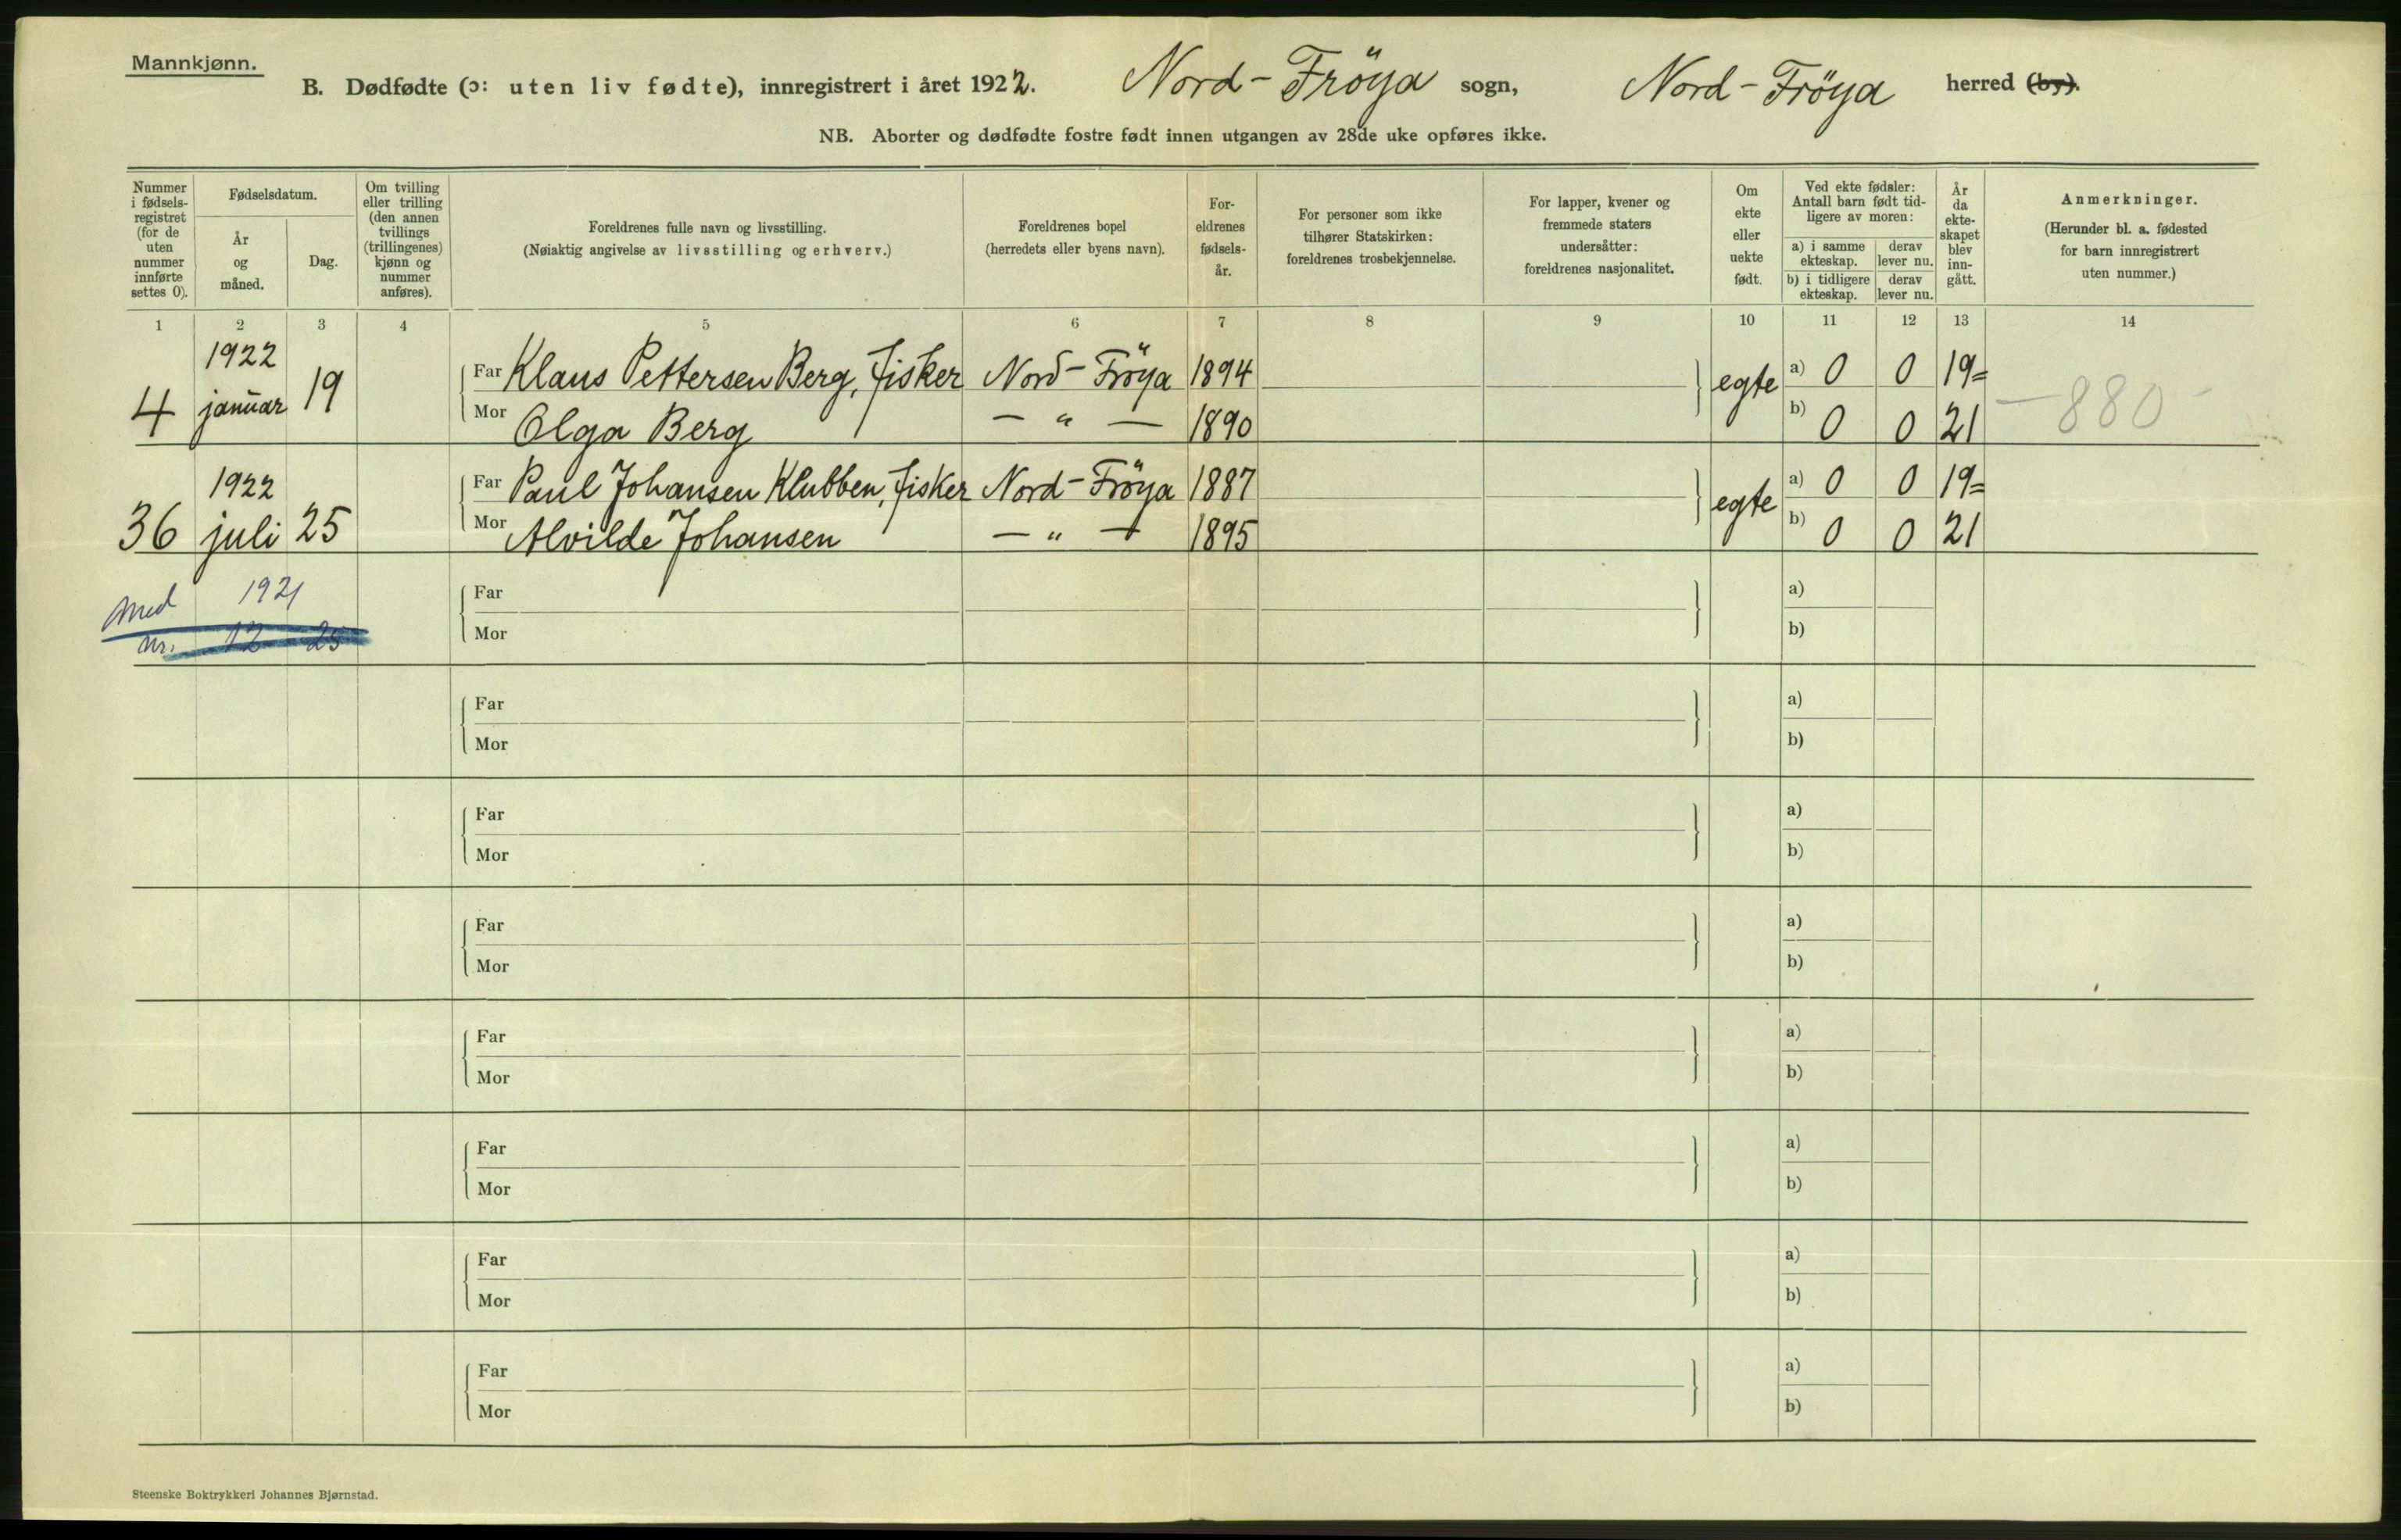 Mannkjønn.
B. Dødfødte (ɔ: uten liv fødte), innregistrert i året 1922. Nord-Fröya sogn, Nord-Fröya herred (by).
NB. Aborter og dødfødte fostre født innen utgangen av 28de uke opføres ikke.
Nummer i fødsels-registret (for de uten nummer innførte settes 0).
Fødselsdatum.
År og måned.
Dag.
Om tvilling eller trilling (den annen tvillings (trillingenes) kjønn og nummer anføres).
Foreldrenes fulle navn og livsstilling.
(Nøiaktig angivelse av livsstilling og erhverv.)
Foreldrenes bopel
(herredets eller byens navn).
For-eldrenes fødsels-år.
For personer som ikke tilhører Statskirken: foreldrenes trosbekjennelse.
For lapper, kvener og fremmede staters undersåtter: foreldrenes nasjonalitet.
Om ekte eller uekte født.
Ved ekte fødsler: Antall barn født tid-ligere av moren:
a) i samme ekteskap. derav lever nu.
b) i tidligere ekteskap. derav lever nu.
År da ekte-skapet blev inn-gått.
Anmerkninger.
(Herunder bl. a. fødested for barn innregistrert uten nummer.)
1 2 3 4 5 6 7 8 9 10 11 12 13 14
1922
4 januar 19 Far Klaus Pettersen Berg, fisker Nord-Fröya 1894 egte a) 0 0 19=
Mor Olga Berg — " — 1890 b) 0 0 21 — 880 -
1922
36 juli 25 Far Paul Johansen Klubben, fisker Nord-Fröya 1887 egte a) 0 0 19=
Mor Alvilde Johansen — " — 1895 b) 0 0 21
Med 1921
nr. 12 25
Far a)
Mor b)
Far a)
Mor b)
Far a)
Mor b)
Far a)
Mor b)
Far a)
Mor b)
Far a)
Mor b)
Far a)
Mor b)
Far a)
Mor b)
Steenske Boktrykkeri Johannes Bjørnstad.